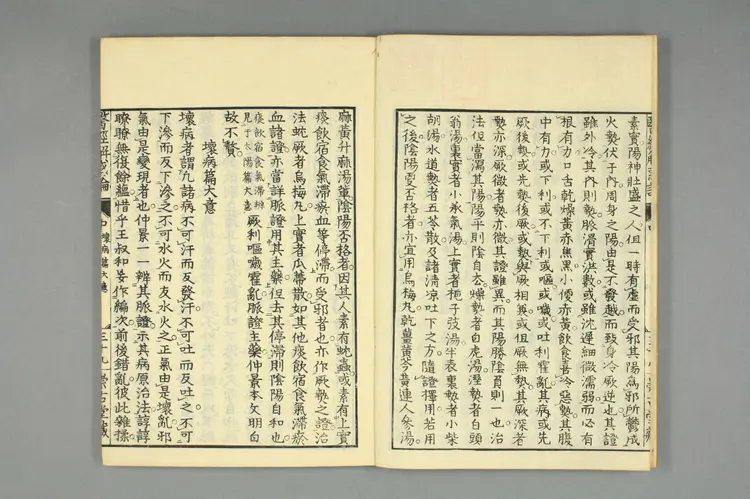 素實陽神壯盛之人但一時有虛而受邪其陽為邪所鬱成
火熱伏于內周身之陽由是不發越而致身冷厥逆也其證
雖外冷其內則熱脈滑實洪數或雖沈遲細微濡弱而必有
根有力口舌乾燥黃赤焦黑小便赤黃飲食喜冷惡熱其腹
中有力或下利或不下利或嘔或噦或吐利霍亂其病或先
厥後熱或先熱後厥或熱與厥相兼或但厥無熱其厥深者
熱亦深厥微者熱亦微其證雖異而其陽勝陰負則一也治
法但當瀉其陽陽平則陰自去燥熱者白虎湯濕熱者白頭
翁湯裏實者小承氣湯上實者梔子豉湯半表裏熱者小柴
胡湯水道熱者五苓散及諸清涼吐下之方隨證擇用若用
之後陰陽要否格者亦宜用烏梅丸乾薑黃芩黃連人參湯
麻黃升麻湯等陰陽否格者因其人素有蚘蟲或素有上實
痰飲宿食氣滯瘀血等停滯而受邪者也亦作厥熱之證治
法蚘厥者烏梅丸上實者瓜蒂散如其他痰飲宿食氣滯瘀
血諸證亦當詳脈證用其主藥但去其停滯則陰陽自和也
痰飲宿食氣滯辨見于太陽篇大意 厥利嘔噦霍亂脈證主藥仲景本文明白
故不贅
壞病篇大意
壞病者謂九諸病不可汗而反發汗不可吐而反吐之不可
下滲而反下滲之不可水火而反水火之正氣由是壞亂邪
氣由是變現者也仲景一一辨其脈證示其病原治法諄諄
瞭瞭無復餘蘊惜乎王叔和妄作編次前後錯亂彼此雜糅
壞病篇大意
三十九